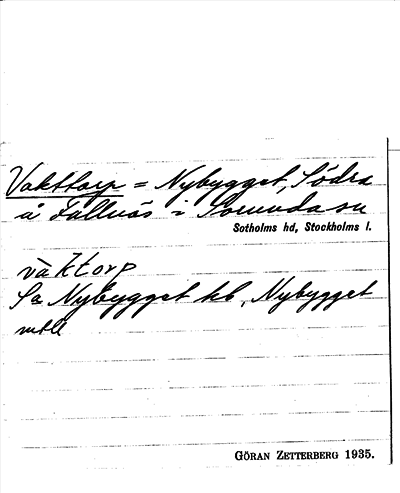 Vakttorp = Nybygget, Södra
å Fållnäs i Sorunda sn
Sotholms hd, Stockholms l.
vàktorp
Sa Nybygget kb, Nybygget
GÖRAN ZETTERBERG 1935.